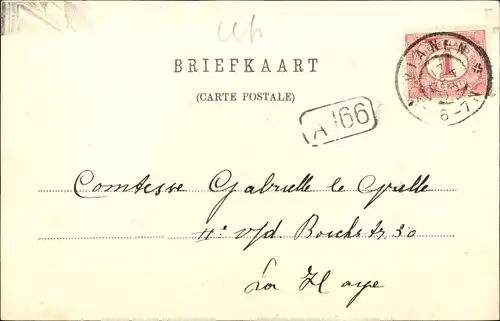 BRIEFKAART
(CARTE POSTALE)
VIANEN
1
6-7N
A 166
Comtesse Gabrielle le Grelle
v/d Boschstr, 30
La Haye